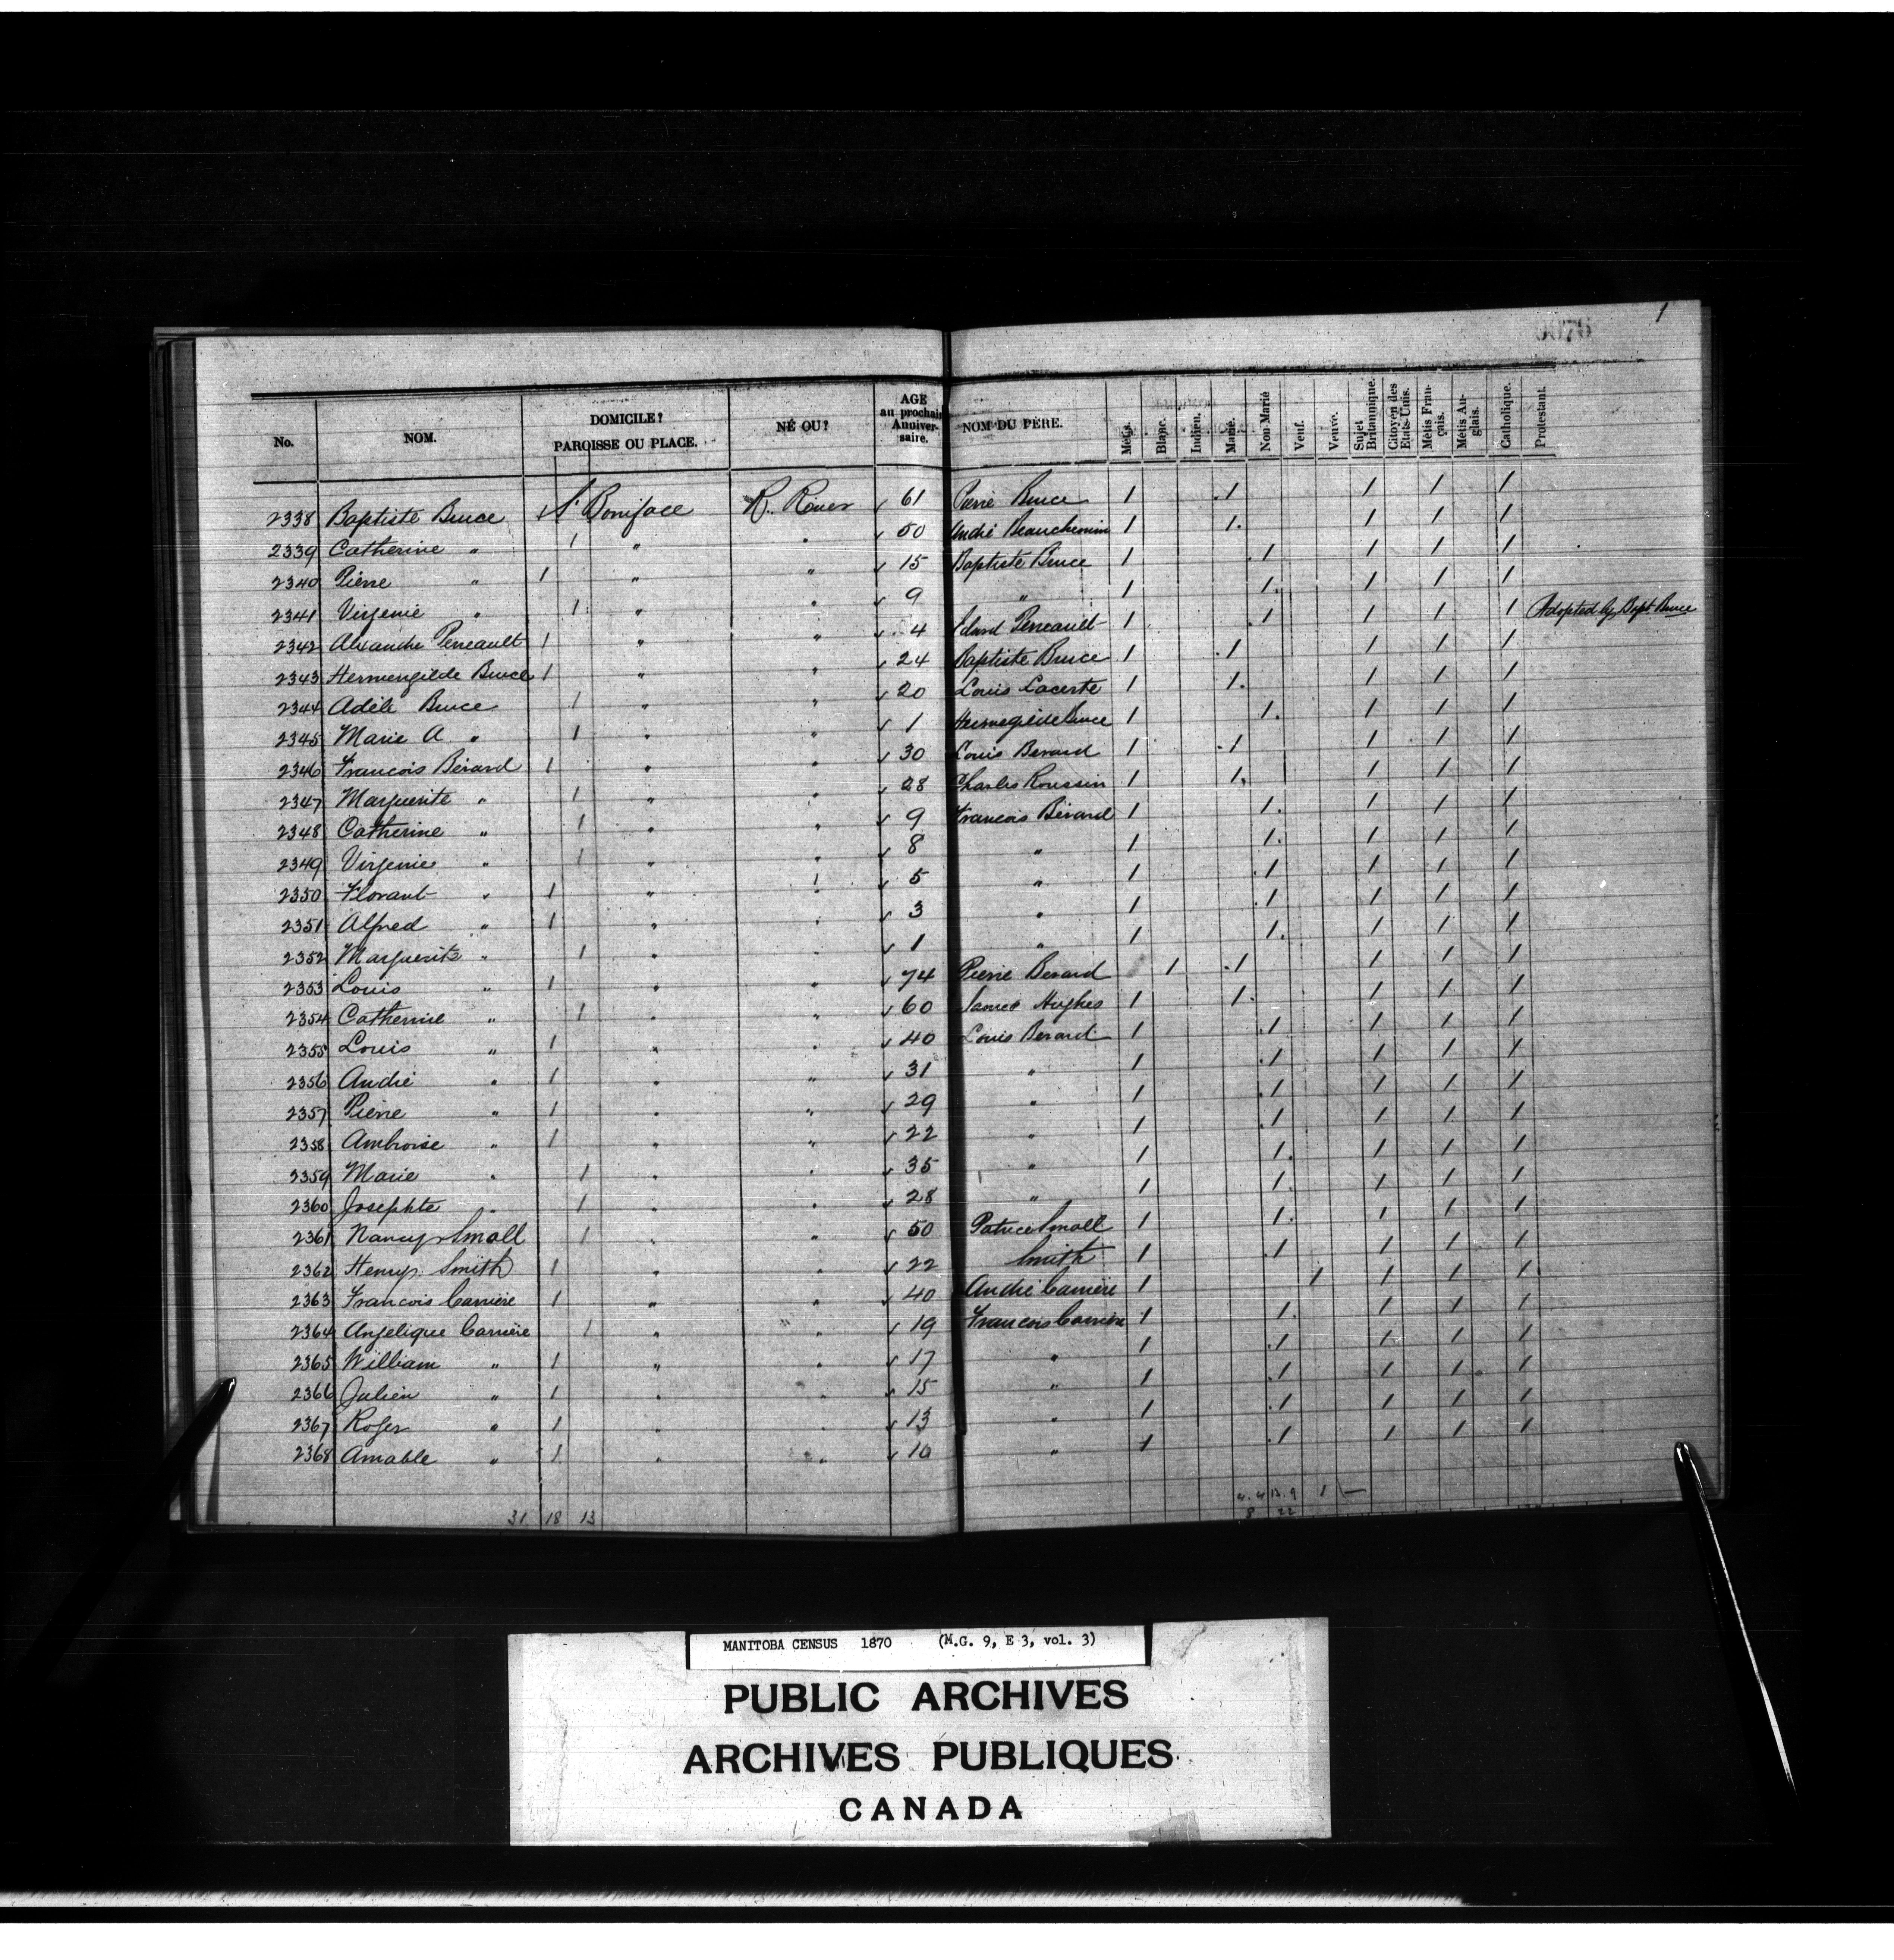 1
0076
No. NOM. DOMICILE? PAROISSE OU PLACE. NÉ OU? AGE au prochain Anniversaire. NOM DU PÈRE. Métis. Blanc. Indien. Marié. Non-Marié Veuf. Veuve. Sujet Britannique. Citoyen des Etats-Unis. Métis Français. Métis Anglais. Catholique. Protestant.
2338 Baptiste Bruce 1 St Boniface R. River √ 61 Pierre Bruce 1 1 1 1 1
2339 Catherine " 1 " " √ 50 André Beauchemin 1 1 1 1 1
2340 Pierre " 1 " " √ 15 Baptiste Bruce 1 1 1 1 1
2341 Virgenie " 1 " " √ 9 " 1 1 1 1 1
2342 Alexandre Perreault 1 " " √ 4 Edard Perreault 1 1 1 1 1 Adopted by Bapt. Bruce
2343 Hermengilde Bruce 1 " " √ 24 Baptiste Bruce 1 1 1 1 1
2344 Adèle Bruce 1 " " √ 20 Louis Lacerte 1 1 1 1 1
2345 Marie A " 1 " " √ 1 Hermegilde Bruce 1 1 1 1 1
2346 Francois Bérard 1 " " √ 30 Louis Berard 1 1 1 1 1
2347 Marguerite " 1 " " √ 28 Charles Roussin 1 1 1 1 1
2348 Catherine " 1 " " √ 9 Francois Bérard 1 1 1 1 1
2349 Virgenie " 1 " " √ 8 " 1 1 1 1 1
2350 Florant " 1 " " √ 5 " 1 1 1 1 1
2351 Alfred " 1 " " √ 3 " 1 1 1 1 1
2352 Marguerite " 1 " " √ 1 " 1 1 1 1 1
2353 Louis " 1 " " √ 74 Pierre Berard 1 1 1 1 1
2354 Catherine " 1 " " √ 60 James Hughes 1 1 1 1 1
2355 Louis " 1 " " √ 40 Louis Berard 1 1 1 1 1
2356 André " 1 " " √ 31 " 1 1 1 1 1
2357 Pierre " 1 " " √ 29 " 1 1 1 1 1
2358 Ambroise " 1 " " √ 22 " 1 1 1 1 1
2359 Marie " 1 " " √ 35 " 1 1 1 1 1
2360 Josephte " 1 " " √ 28 " 1 1 1 1 1
2361 Nancy Small 1 " " √ 50 Patrice Small 1 1 1 1 1
2362 Henry Smith 1 " " √ 22 Smith 1 1 1 1 1
2363 Francois Carrière 1 " " √ 40 André Carrière 1 1 1 1 1
2364 Angelique Carrière 1 " " √ 19 Francois Carrière 1 1 1 1 1
2365 William " 1 " " √ 17 " 1 1 1 1 1
2366 Julien " 1 " " √ 15 " 1 1 1 1 1
2367 Roger " 1 " " √ 13 " 1 1 1 1 1
2368 Amable " 1 " " √ 10 " 1 1 1 1 1
4. 4 13. 9 1
31 18 13 8 22
MANITOBA CENSUS 1870 (M.G. 9, E 3, vol. 3)
PUBLIC ARCHIVES
ARCHIVES PUBLIQUES
CANADA